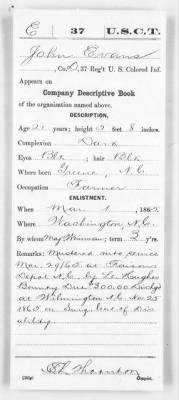 E 37 U.S.C.T.
John Evans
, Co. D, 37 Reg't U. S. Colored Inf.
Appears on
Company Descriptive Book
of the organization named above.
DESCRIPTION.
Age 21 years; height 5 feet 8 inches.
Complexion Dark
Eyes Blk ; hair Blk
Where born Greene, N.C
Occupation Farmer
ENLISTMENT.
When Mar 1 , 1865.
Where Washington, N.C.
By whom Maj ; term 3 y'rs.
Remarks: Mustered into service
Mar. 29/65 at Faisons
Depot N.C. by Lt Hughes
Bounty Due $300.00 Disch'd
at Wilmington N.C. Nov 25
1865 on Surg. Cert of Dis
ability
Thornton
Copyist.